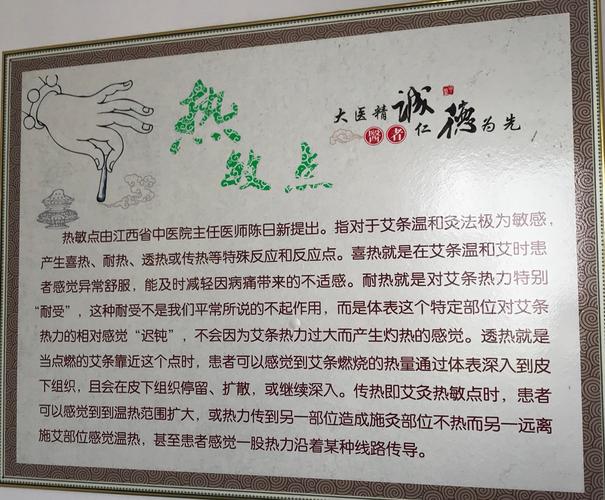 大医精诚
医者仁德为先
热敏点
热敏点由江西省中医院主任医师陈日新提出。指对于艾条温和灸法极为敏感，
产生喜热、耐热、透热或传热等特殊反应和反应点。喜热就是在艾条温和艾时患
者感觉异常舒服，能及时减轻因病痛带来的不适感。耐热就是对艾条热力特别
“耐受”，这种耐受不是我们平常所说的不起作用，而是体表这个特定部位对艾条
热力的相对感觉“迟钝”，不会因为艾条热力过大而产生灼热的感觉。透热就是
当点燃的艾条靠近这个点时，患者可以感觉到艾条燃烧的热量通过体表深入到皮
下组织，且会在皮下组织停留、扩散，或继续深入。传热即艾灸热敏点时，患者
可以感觉到到温热范围扩大，或热力传到另一部位造成施灸部位不热而另一远离
施艾部位感觉温热，甚至患者感觉一股热力沿着某种线路传导。